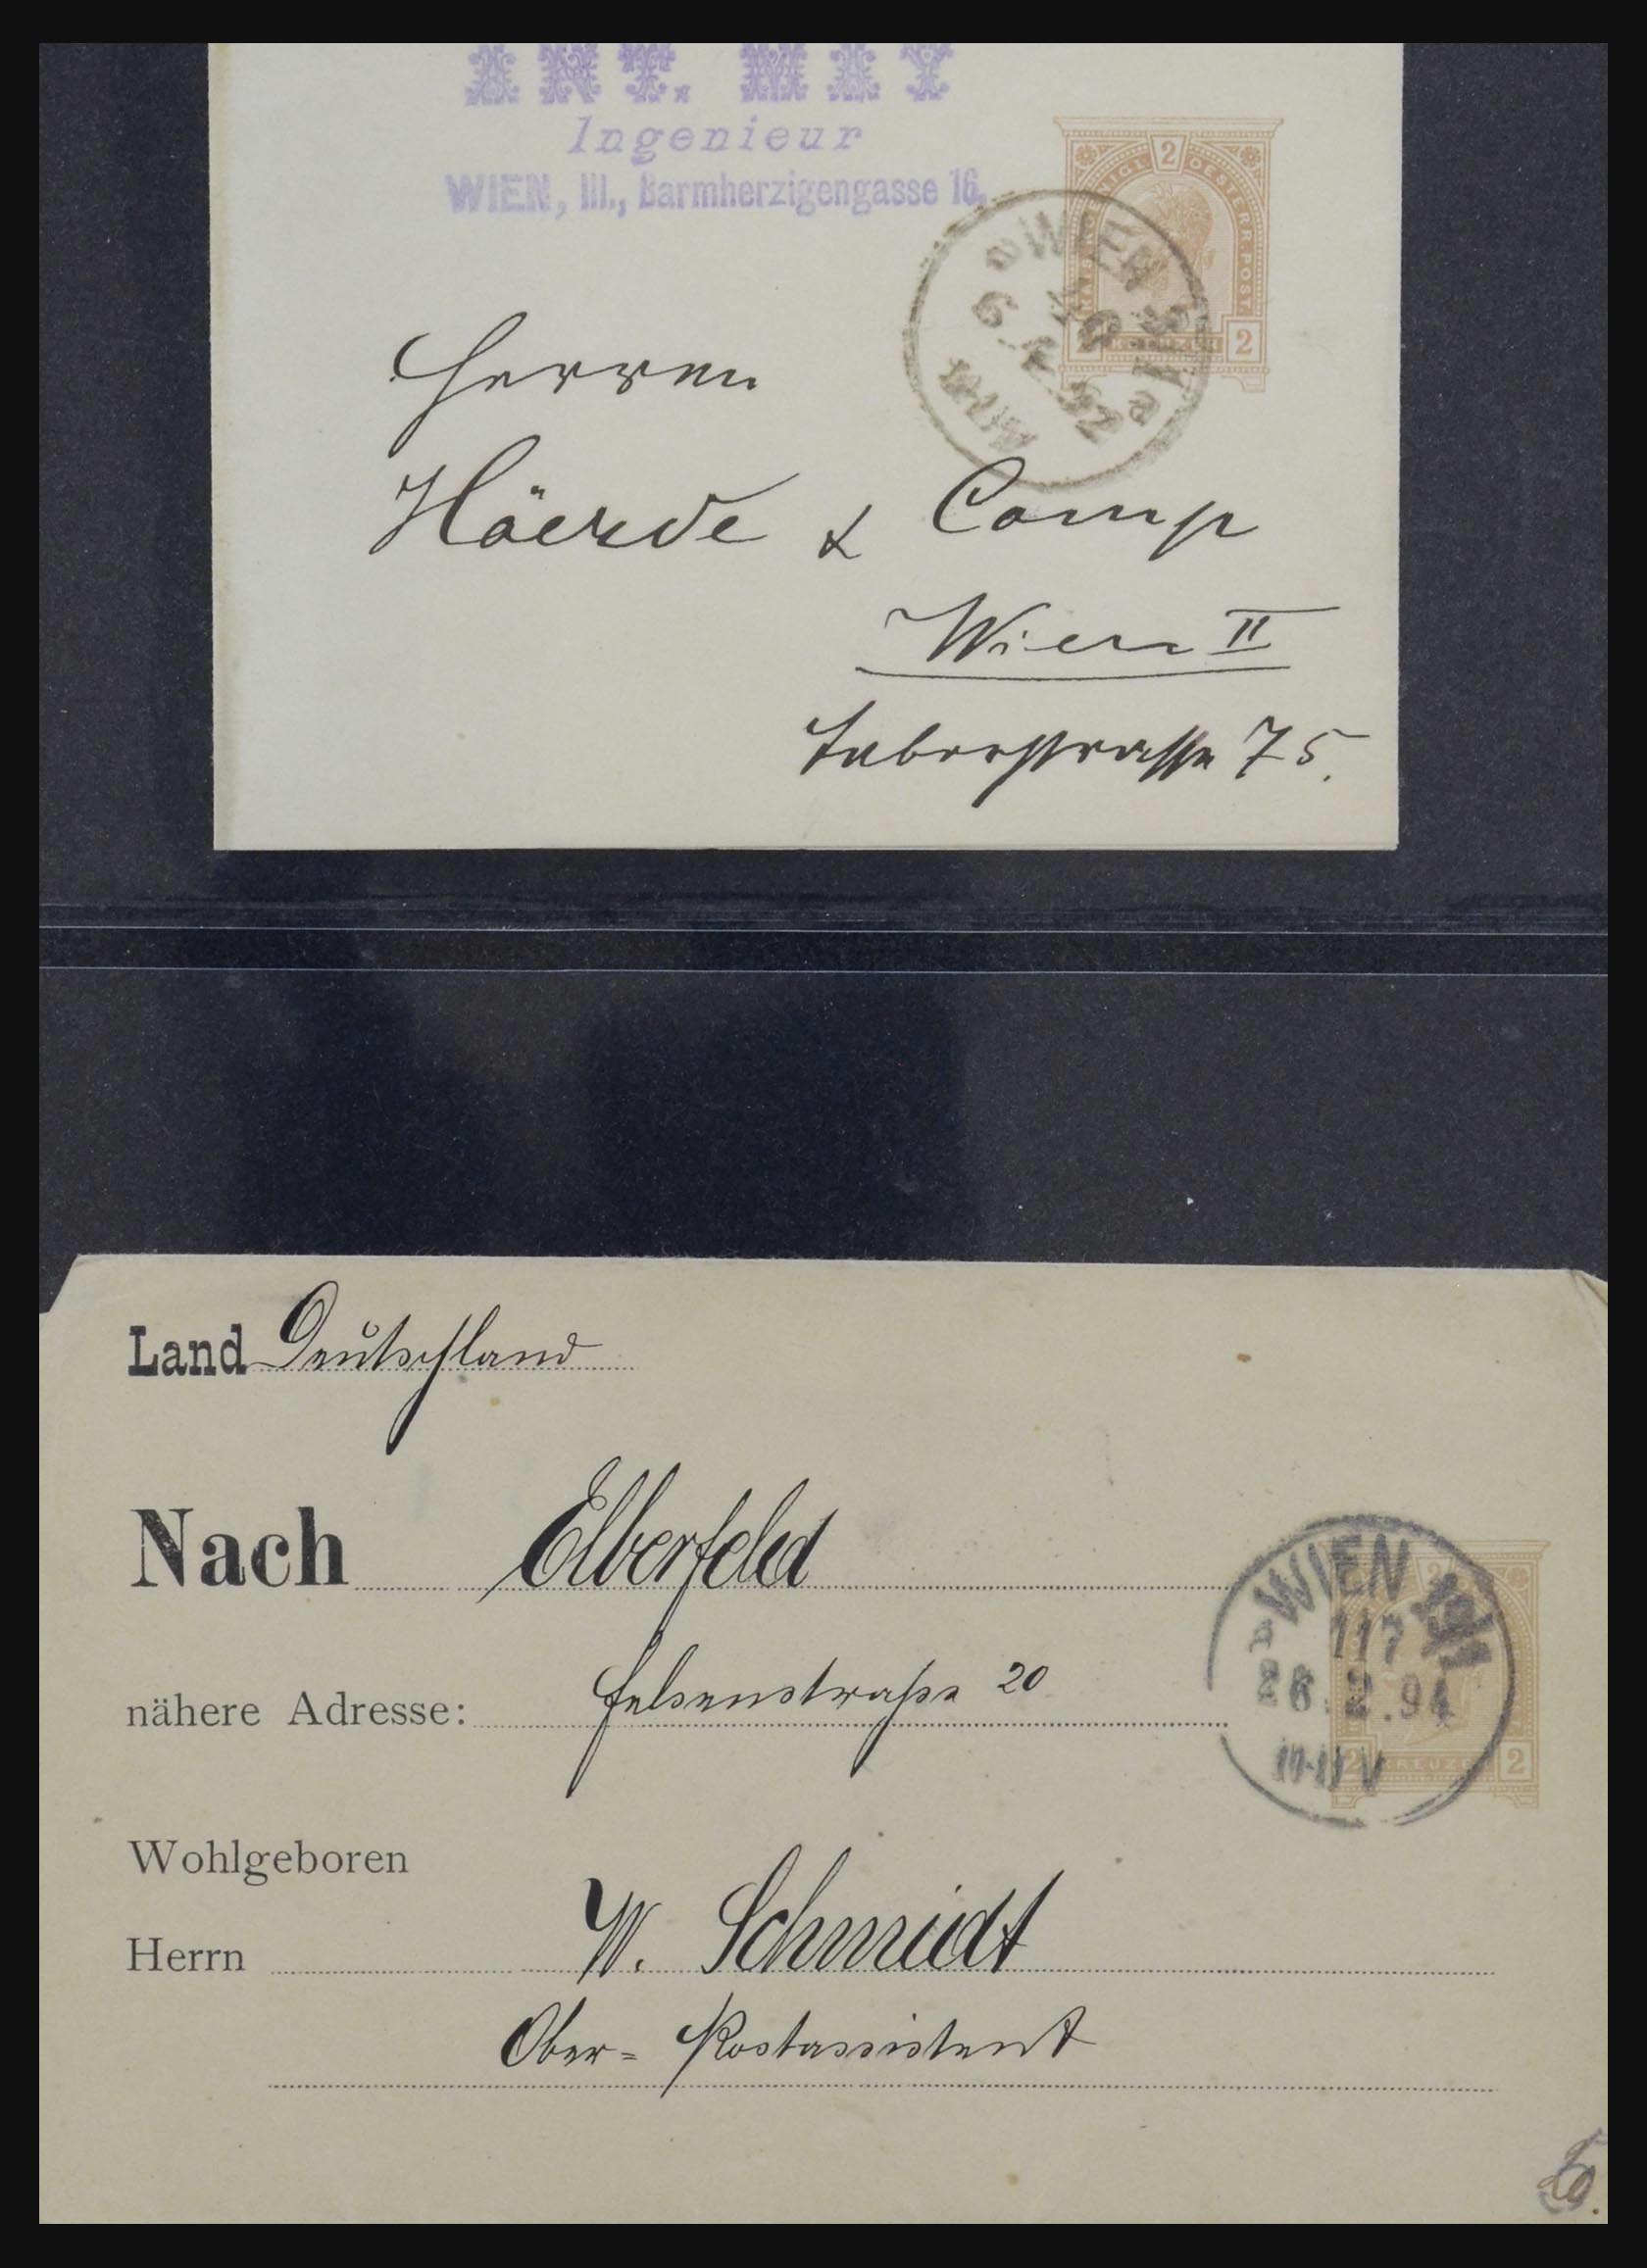 ANT. MAY
Ingenieur
WIEN, III., Barmherzigengasse 16.
2
KAIS. KÖNIGL. OESTERR. POST.
2 KREUZER 2
WIEN
Herren
Höerde & Comp
Wien II
Taborstrasse 75.
Land Deutschland
Nach Elberfeld
nähere Adresse: Felsenstraße 20
WIEN 19/1
117
26.2.94
10-11 V
2 KREUZER 2
Wohlgeboren
Herrn W. Schmidt
Ober-Postassistent